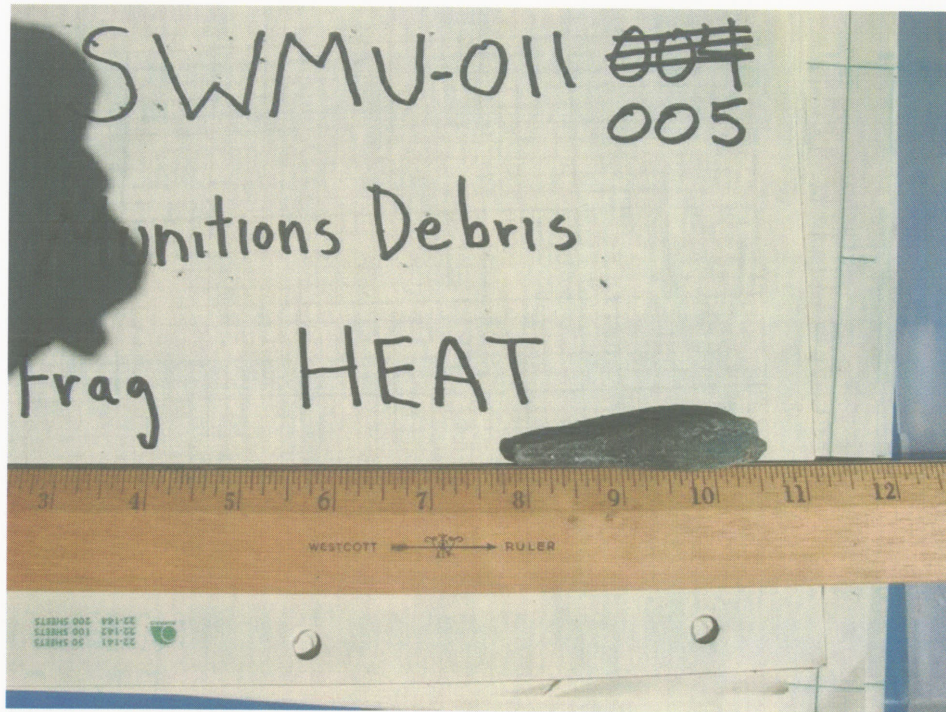 SWMU-011 004
005
Munitions Debris
Frag HEAT
3 4 5 6 7 8 9 10 11 12
WESTCOTT RULER
22-141 50 SHEETS
22-142 100 SHEETS
22-144 200 SHEETS